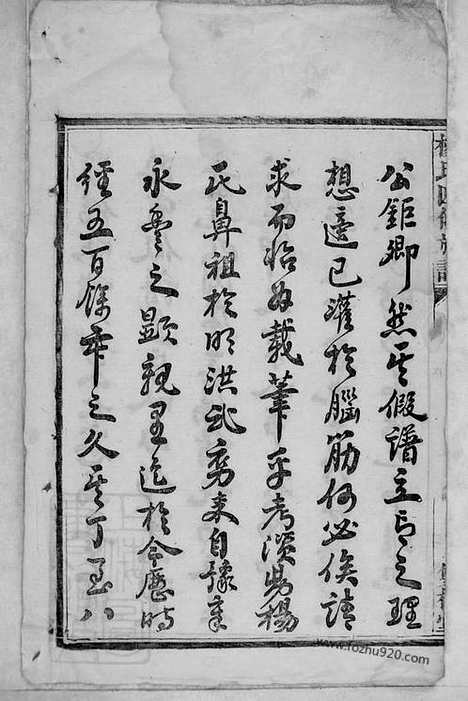 公鉅卿然其假譜立言之理
想適已灌於腦筋何必俟請
求而始為載筆乎考漢陽楊
氏鼻祖於明洪武旁来自豫章
永豊之顯親里迄於今歷時
經五百餘年之久其丁至八
www.fozhu920.com